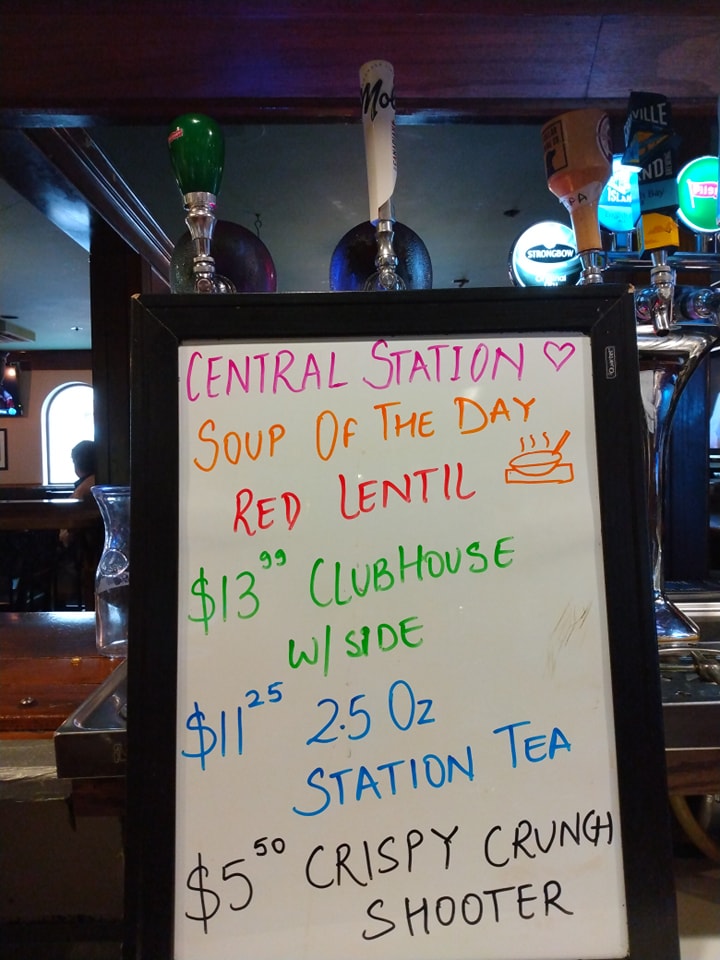 STRONGBOW
CENTRAL STATION ♡
SOUP OF THE DAY
RED LENTIL
$13⁹⁹ CLUBHOUSE
W/ SIDE
$11²⁵ 2.5 Oz
STATION TEA
$5⁵⁰ CRISPY CRUNCH
SHOOTER